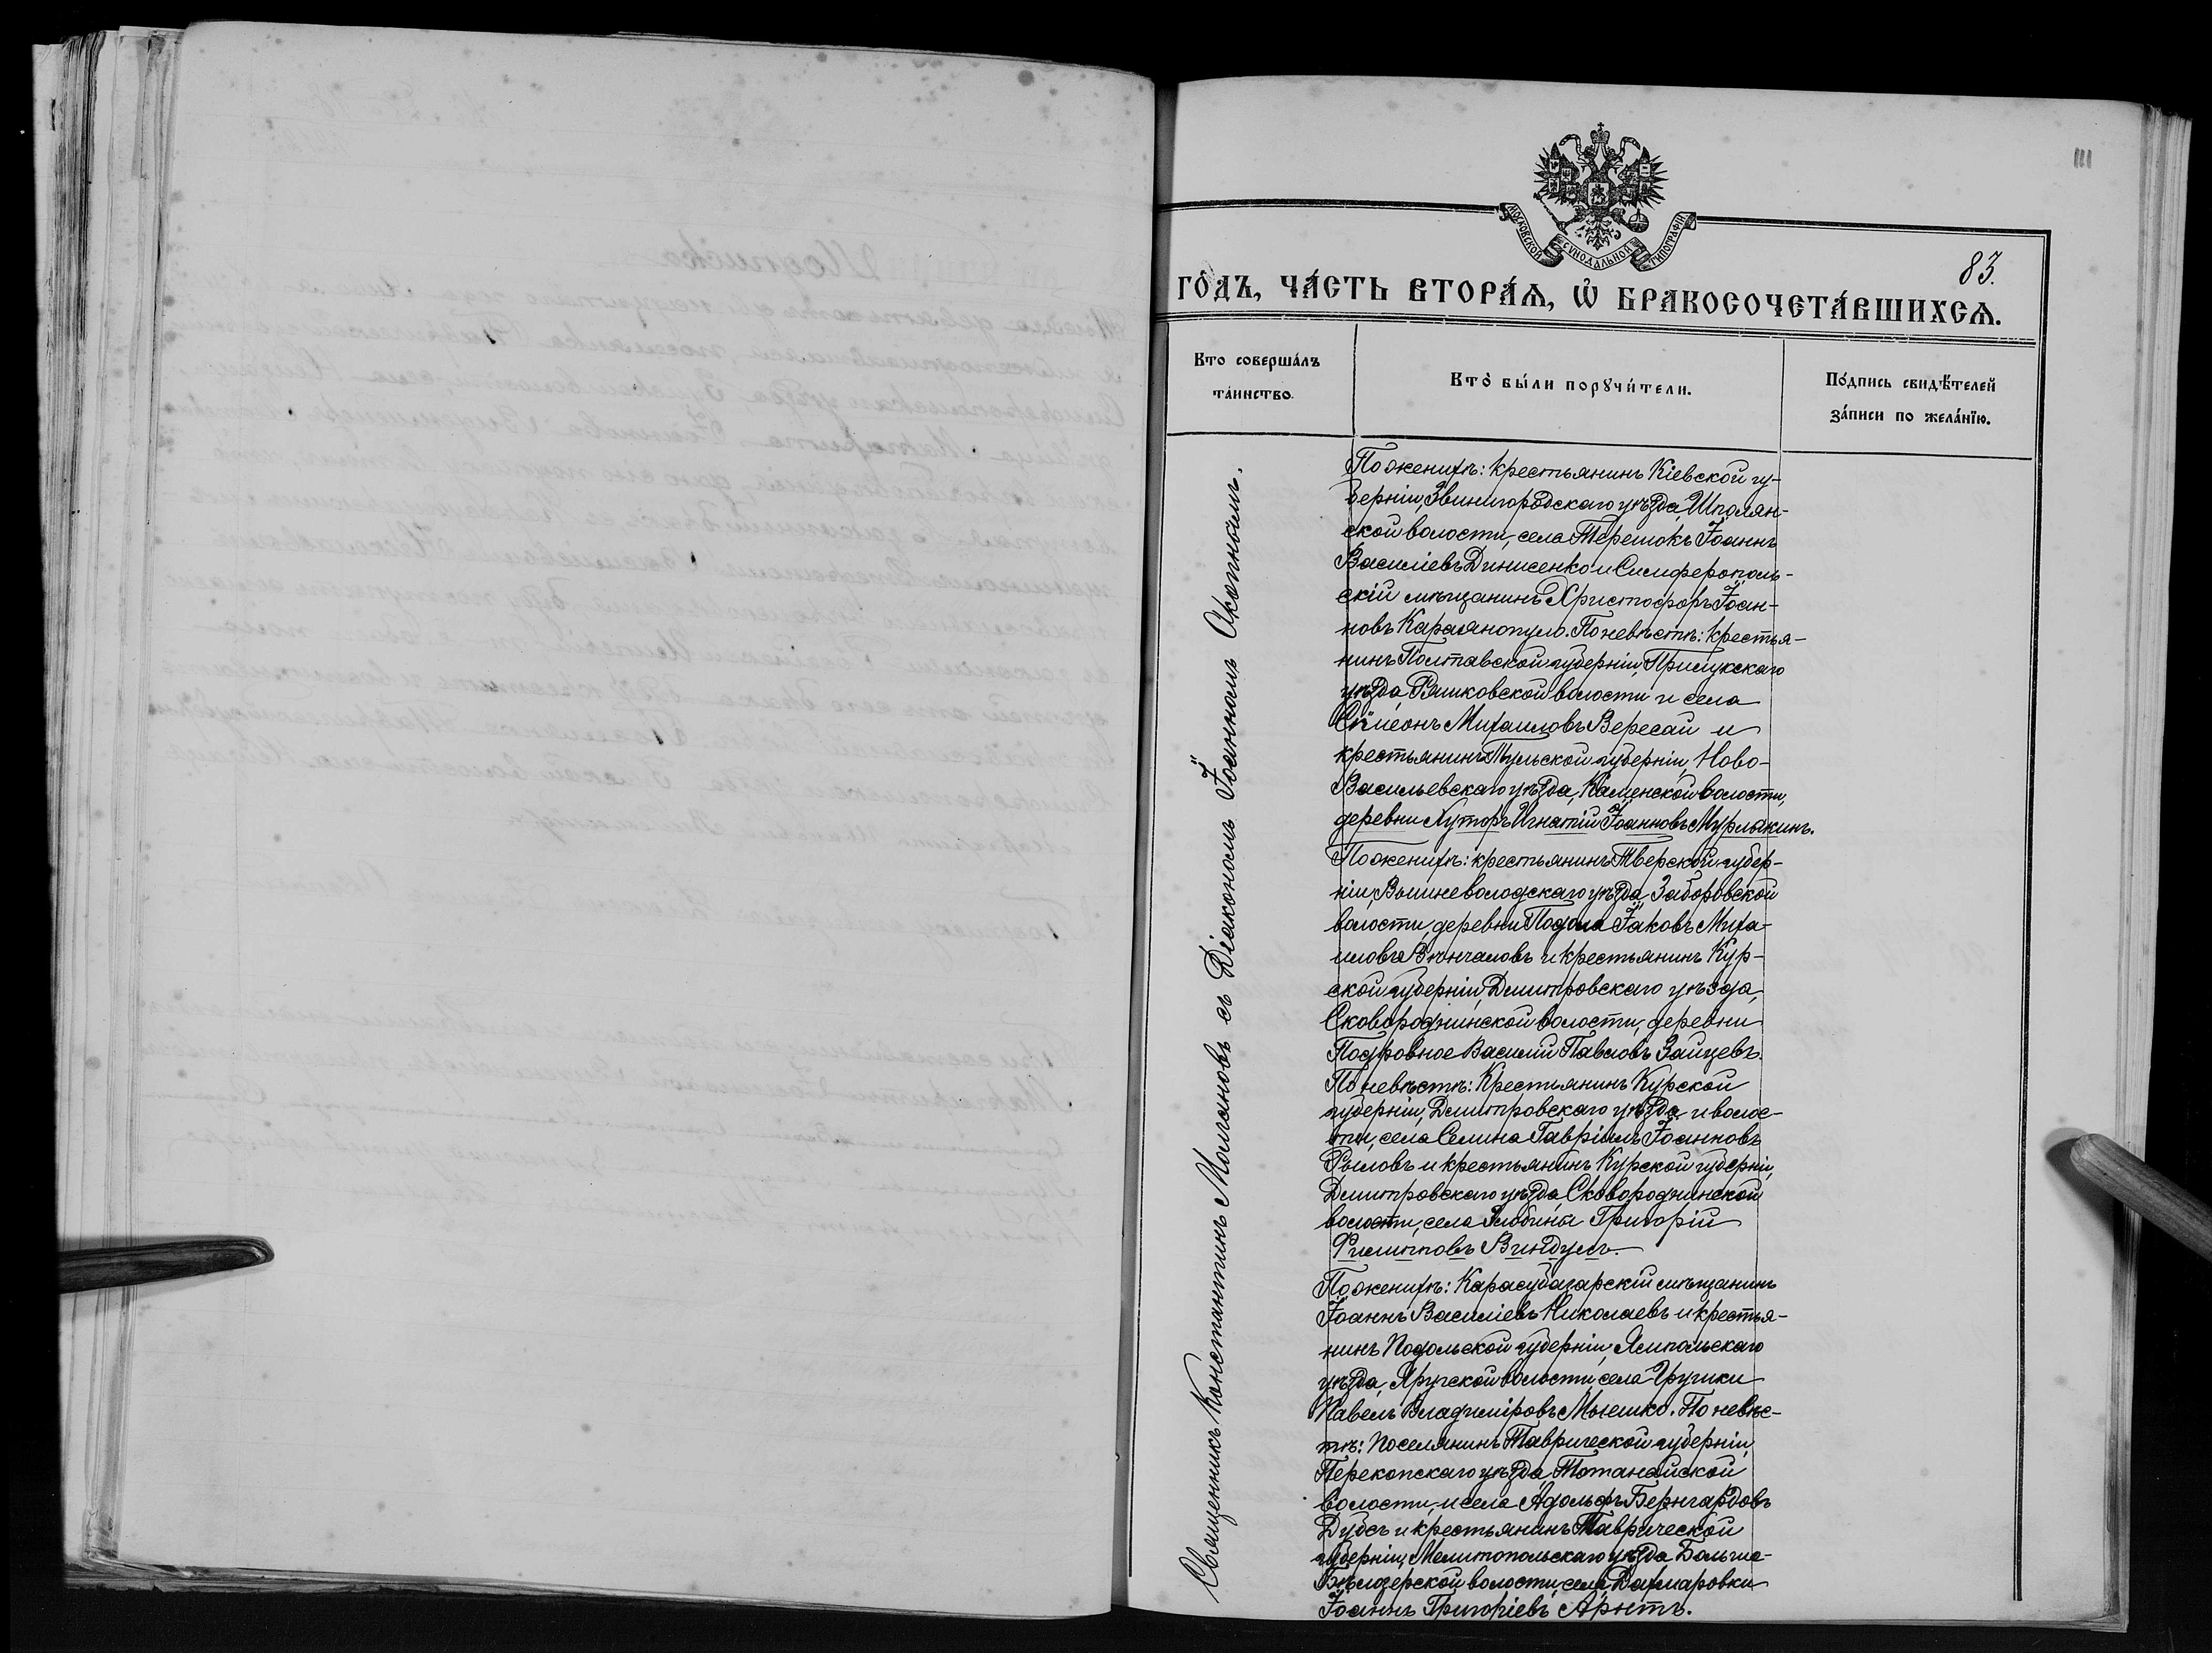 III
МОСКОВСКОЙ СѴНОДАЛЬНОЙ ТИПОГРАФІИ
83.
ГО́ДЪ, ЧА́СТЬ ВТОРА́Я, Ѡ҆ БРАКОСОЧЕТА́ВШИХСЯ.
Кто соверша́лъ
та́инство.
Кто̀ бы́ли порꙋчи́тели.
По́дпись свидѣ́телей
за́писи по жела́нїю.
Священникъ Константинъ Молчановъ съ Діакономъ Іоанномъ Акопнымъ.
По женихѣ: крестьянинъ Кіевской гу-
берніи, Звенигородскаго уѣзда, Шполян-
ской волости, села Терешокъ Іоаннъ
Василіевъ Динисенко и Симферополь-
скій мѣщанинъ Христофоръ Іоан-
новъ Караянопуло. По невѣстѣ: крестья-
нинъ Полтавской губерніи, Прилукскаго
уѣзда, Ряшковской волости и села
Сѵмеонъ Михаиловъ Вересай и
крестьянинъ Тульской губерніи, Ново-
Васильевскаго уѣзда, Каменской волости,
деревни Хуторъ Игнатій Іоанновъ Мурлякинъ.
По женихѣ: крестьянинъ Тверской губер-
ніи, Вышневолодскаго уѣзда, Заборовской
волости, деревни Подола Іаковъ Миха-
иловъ Вончаловъ и крестьянинъ Кур-
ской губерніи, Дмитровскаго уѣзда,
Сковороднинской волости, деревни
Подровное Василій Павловъ Зайцевъ.
По невѣстѣ: Крестьянинъ Курской
губерніи, Дмитровскаго уѣзда и волос-
ти, села Селина Гавріилъ Іоанновъ
Рыловъ и крестьянинъ Курской губерніи,
Дмитровскаго уѣзда, Сковороднинской
волости, села Злобины Григорій
Филиповъ Виндулъ.
По женихѣ: Карасубазарскій мѣщанинъ
Іоаннъ Василіевъ Николаевъ и крестья-
нинъ Подольской губерніи, Ямпольскаго
уѣзда, Яругской волости села Грушки
Павелъ Владиміровъ Мышко. По невѣс-
тѣ: поселянинъ Таврической губерніи,
Перекопскаго уѣзда, Тотанайской
волости и села Адольфъ Бернгардовъ
Дубсъ и крестьянинъ Таврической
губерніи, Мелитопольскаго уѣзда Больше-
Бѣлозерской волости, села Дахмаровки
Іоаннъ Григоріевъ Арнтъ.